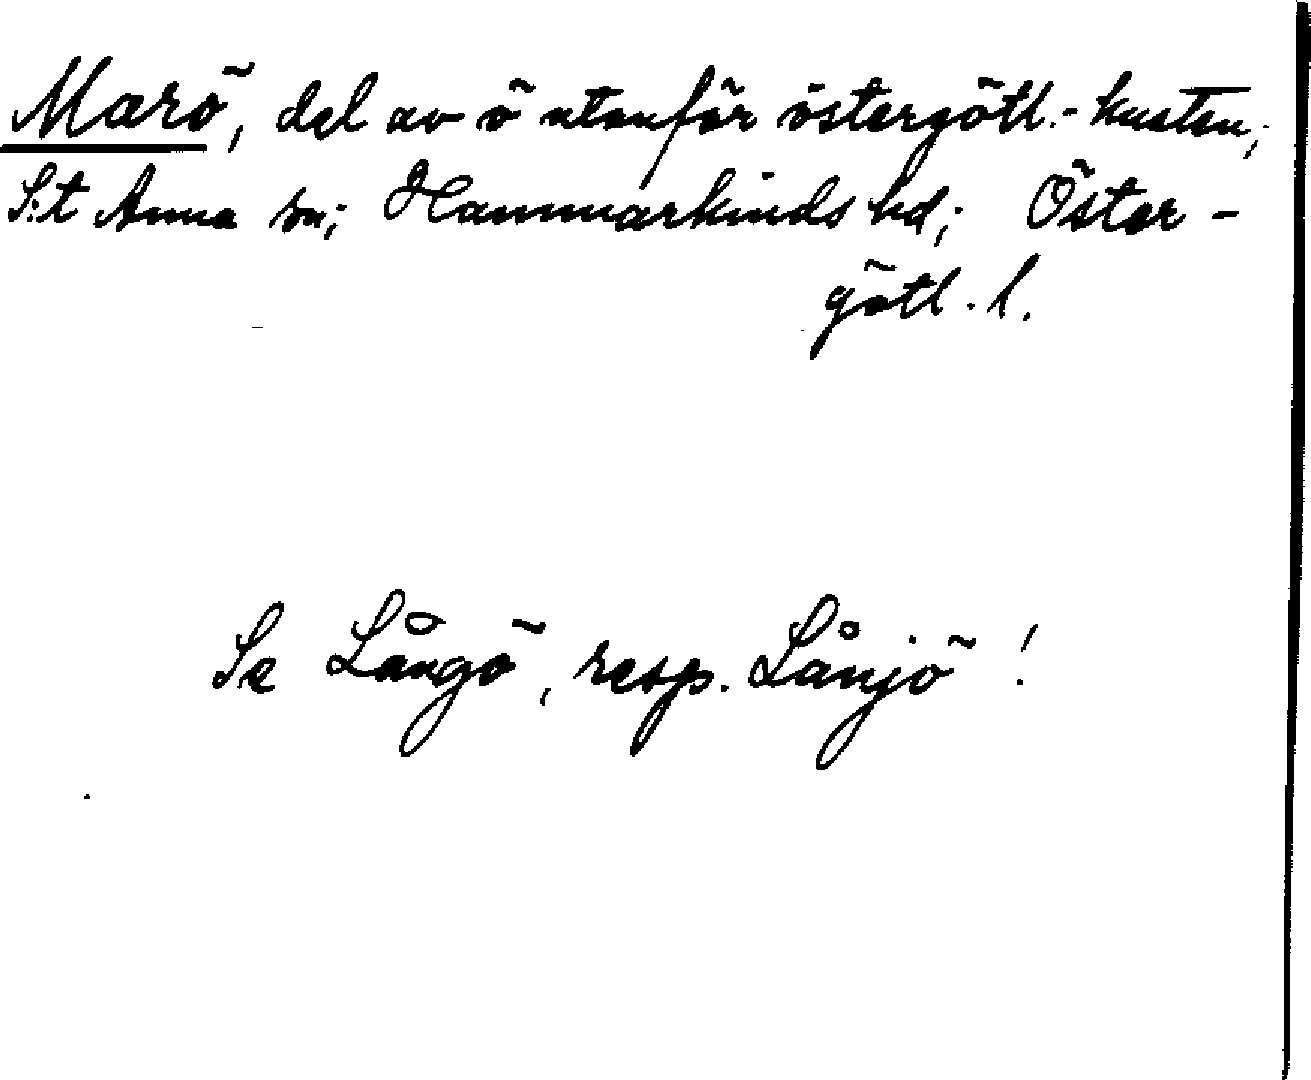 Marö, del av ö utanför östergötl.-kusten;
S:t Anna sn; Hammarkinds hd; Öster-
götl. l.
Se Långö, resp. Lånjö!